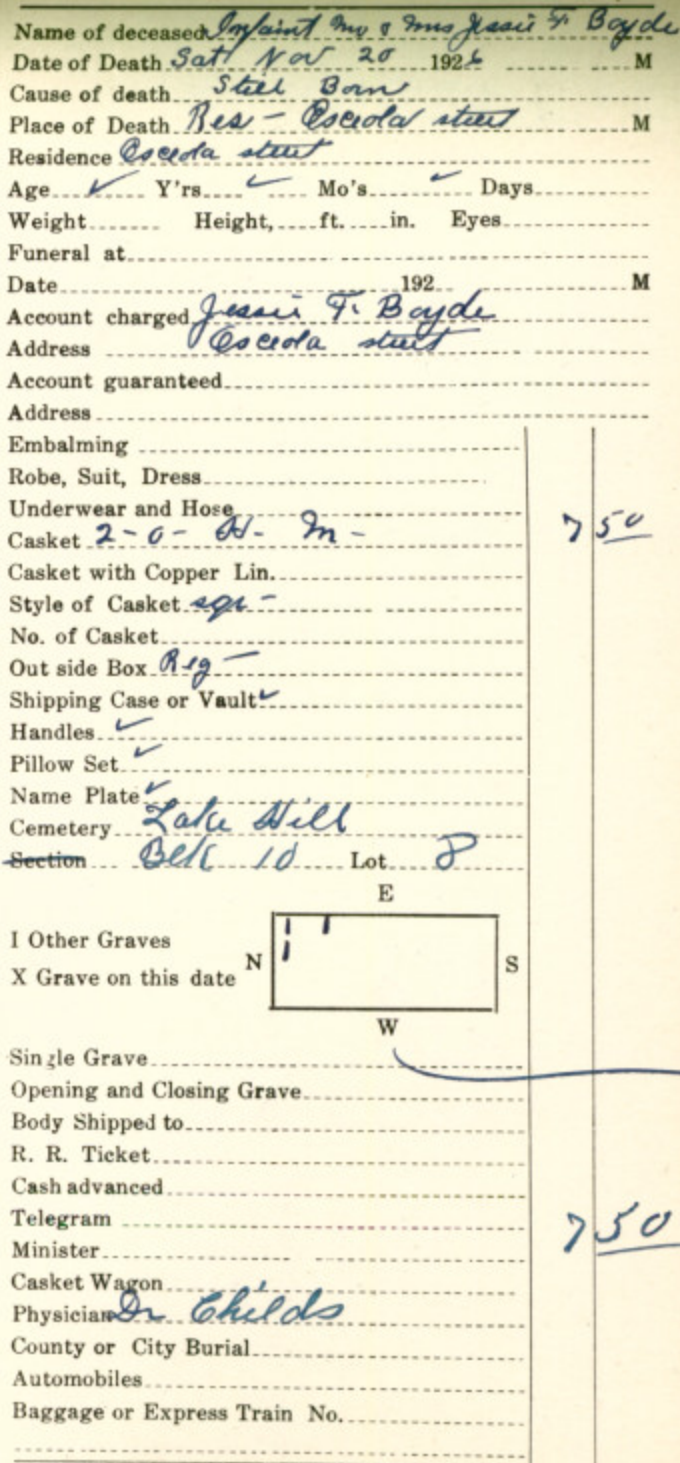 Name of deceased Infaint Mr & Mrs Jessie F. Boyde
Date of Death Sat Nov 20 1926 M
Cause of death Steel Born
Place of Death Res - Osceola street M
Residence Osceola street
Age ✓ Y'rs ✓ Mo's ✓ Days
Weight Height, ft. in. Eyes
Funeral at
Date 192 M
Account charged Jessie F. Boyde
Address Osceola street
Account guaranteed
Address
Embalming
Robe, Suit, Dress
Underwear and Hose
Casket 2-0- H- M- 7 50
Casket with Copper Lin.
Style of Casket sqr -
No. of Casket
Out side Box Reg -
Shipping Case or Vault ✓
Handles ✓
Pillow Set ✓
Name Plate ✓
Cemetery Lake Hill
Section Blk 10 Lot 8
E
I Other Graves
N S
X Grave on this date
W
Single Grave
Opening and Closing Grave
Body Shipped to
R. R. Ticket
Cash advanced
Telegram 7 50
Minister
Casket Wagon
Physician Dr Childs
County or City Burial
Automobiles
Baggage or Express Train No.